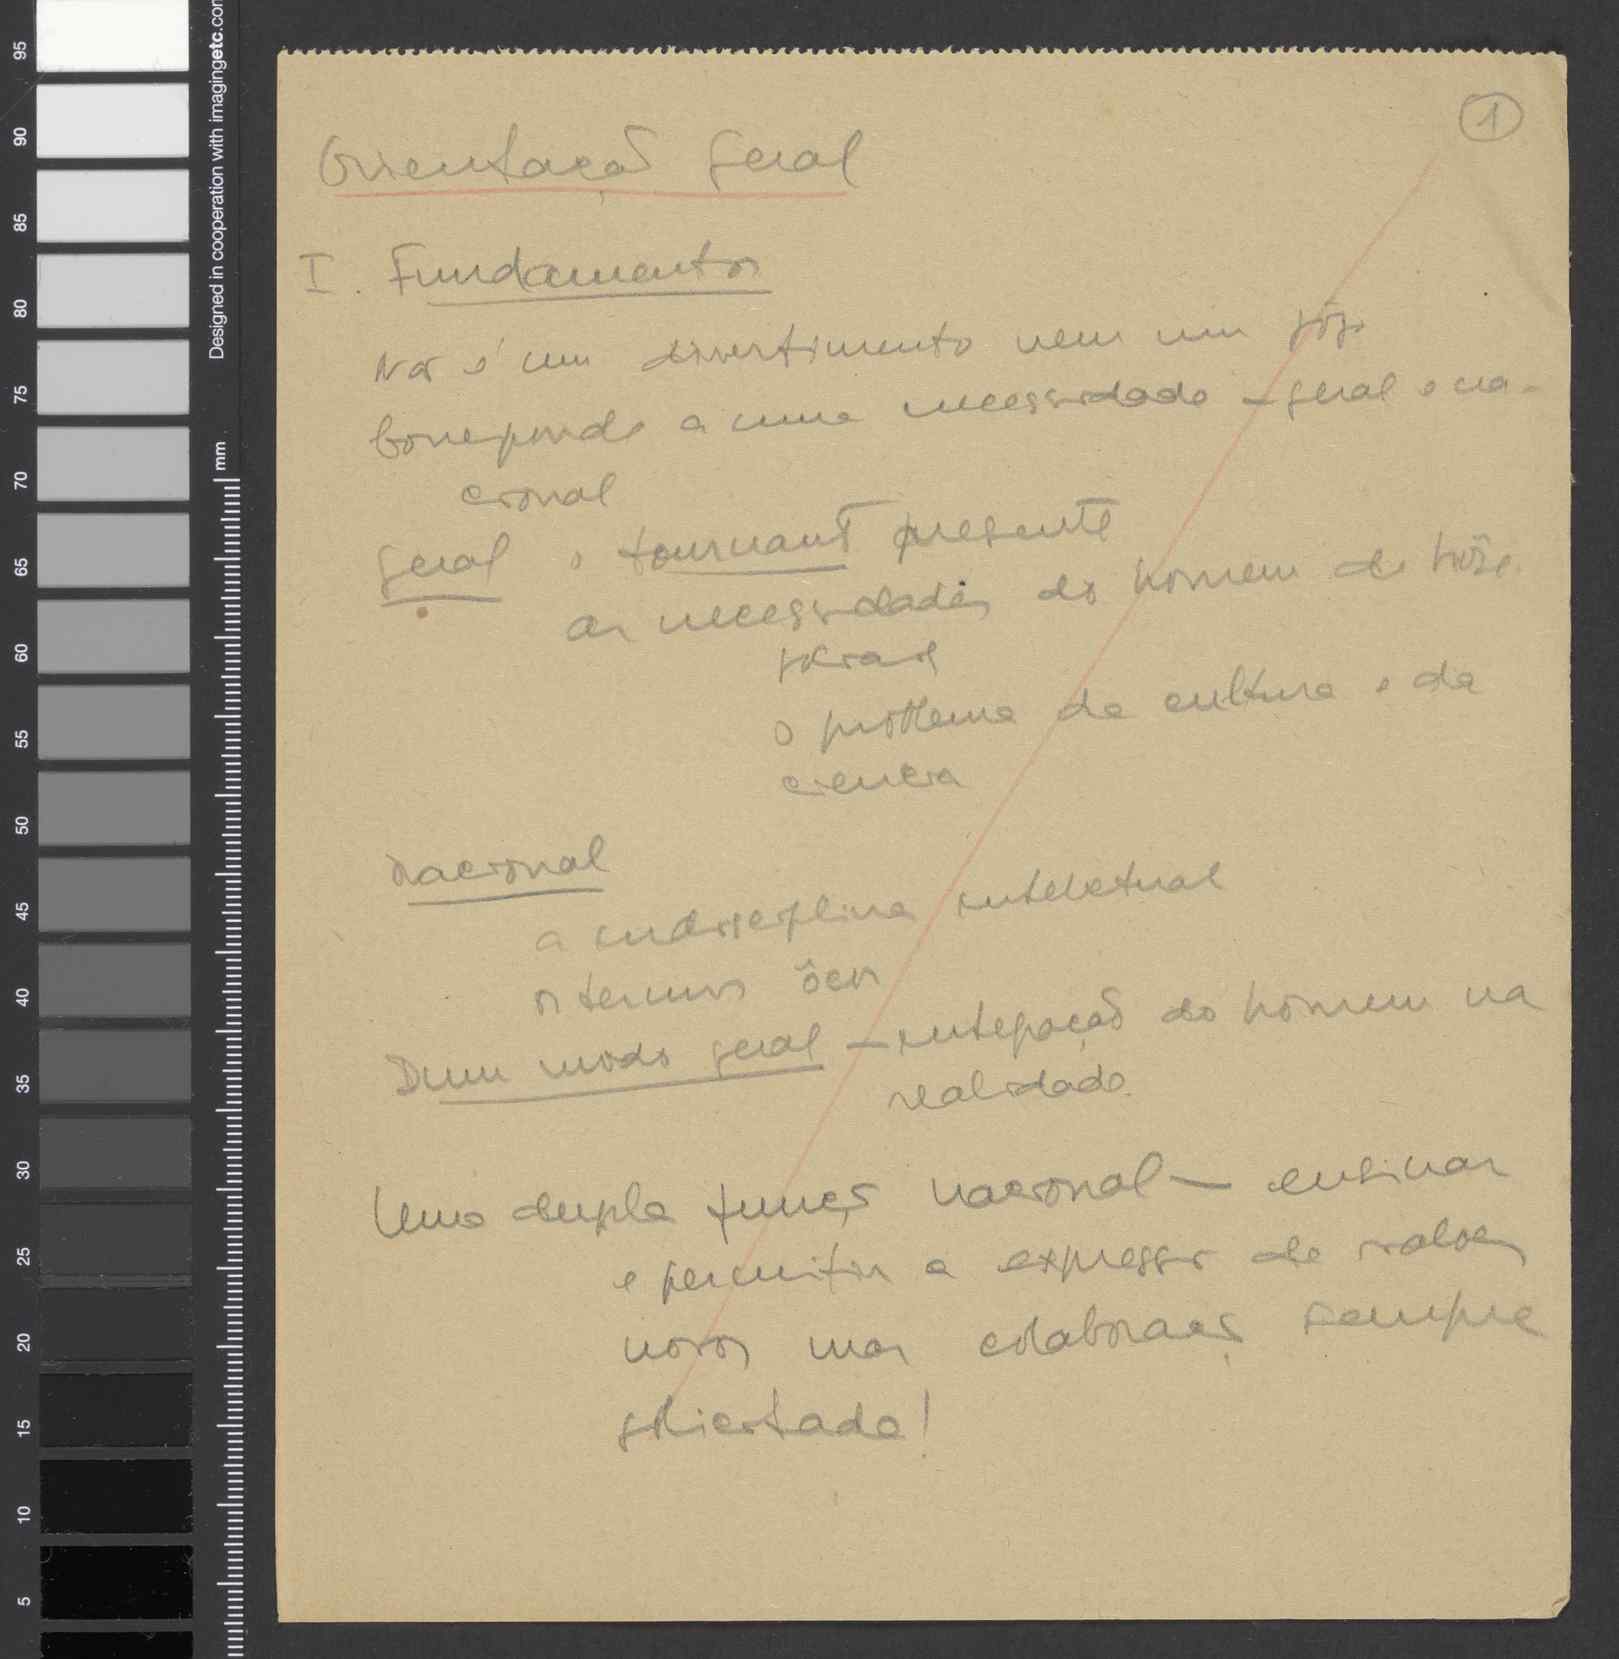 1
Orientação geral
I. Fundamentos
Não é um divertimento nem um jôgo
Corresponde a uma necessidade – geral e na-
cional
geral o tournant presente
as necessidades do homem de hôje
sociais
o problema da cultura e da
ciencia
Nacional
a indisciplina intelectual
os termos ôcos
Dum modo geral – integração do homem na
realidade.
Uma dupla função nacional – ensinar
e permitir a expressão de valores
novos mas colaboração sempre
!
95
90
85
80
75
70
65
60
55
50
45
40
35
30
25
20
15
10
5
Designed in cooperation with imagingetc.com
mm